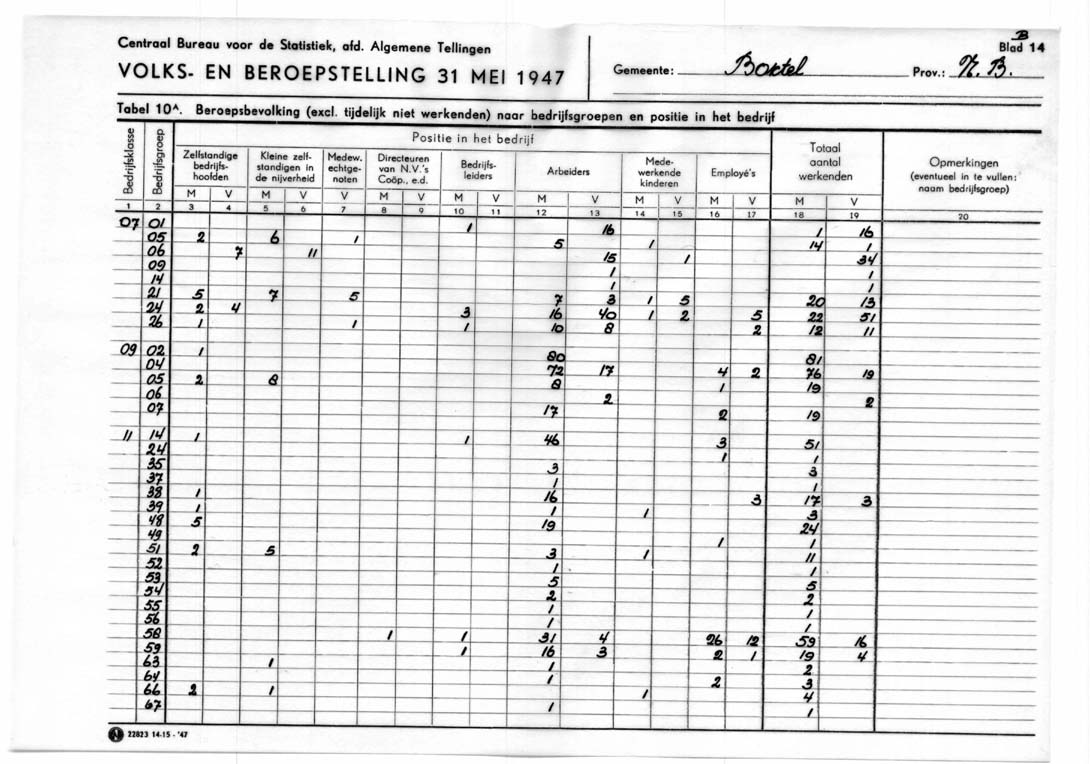 B
Centraal Bureau voor de Statistiek, afd. Algemene Tellingen
Blad 14
VOLKS- EN BEROEPSTELLING 31 MEI 1947
Gemeente: Boxtel Prov.: N. B.
Tabel 10A. Beroepsbevolking (excl. tijdelijk niet werkenden) naar bedrijfsgroepen en positie in het bedrijf
Bedrijfsklasse Bedrijfsgroep Positie in het bedrijf Totaal aantal werkenden Opmerkingen (eventueel in te vullen: naam bedrijfsgroep)
Zelfstandige bedrijfs- hoofden Kleine zelf- standigen in de nijverheid Medew. echtge- noten Directeuren van N.V.'s Coöp., e.d. Bedrijfs- leiders Arbeiders Mede- werkende kinderen Employé's
M V M V V M V M V M V M V M V M V
1 2 3 4 5 6 7 8 9 10 11 12 13 14 15 16 17 18 19 20
07 01 1 16 1 16
05 2 6 1 5 1 14 1
06 7 11 15 1 34
09 1 1
14 1 1
21 5 7 5 7 3 1 5 20 13
24 2 4 3 16 40 1 2 5 22 51
26 1 1 1 10 8 2 12 11
09 02 1 80 81
04 72 17 4 2 76 19
05 2 8 8 1 19
06 2 2
07 17 2 19
11 14 1 1 46 3 51
24 1 1
35 3 3
37 1 1
38 1 16 3 17 3
39 1 1 1 3
48 5 19 24
49 1 1
51 2 5 3 1 11
52 1 1
53 5 5
54 2 2
55 1 1
56 1 1
58 1 1 31 4 26 12 59 16
59 1 16 3 2 1 19 4
63 1 1 2
64 1 2 3
66 2 1 1 4
67 1 1
22823 14-15 - '47